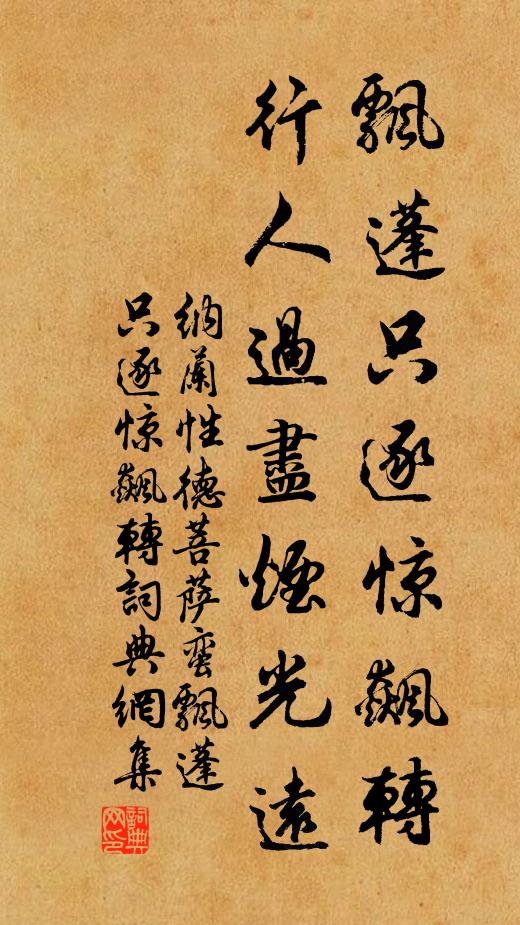 飄蓬只逐惊飙轉
行人過盡煙光遠
納蘭性德菩萨蛮飄蓬
只逐惊飙轉詞典網集
詞典网印